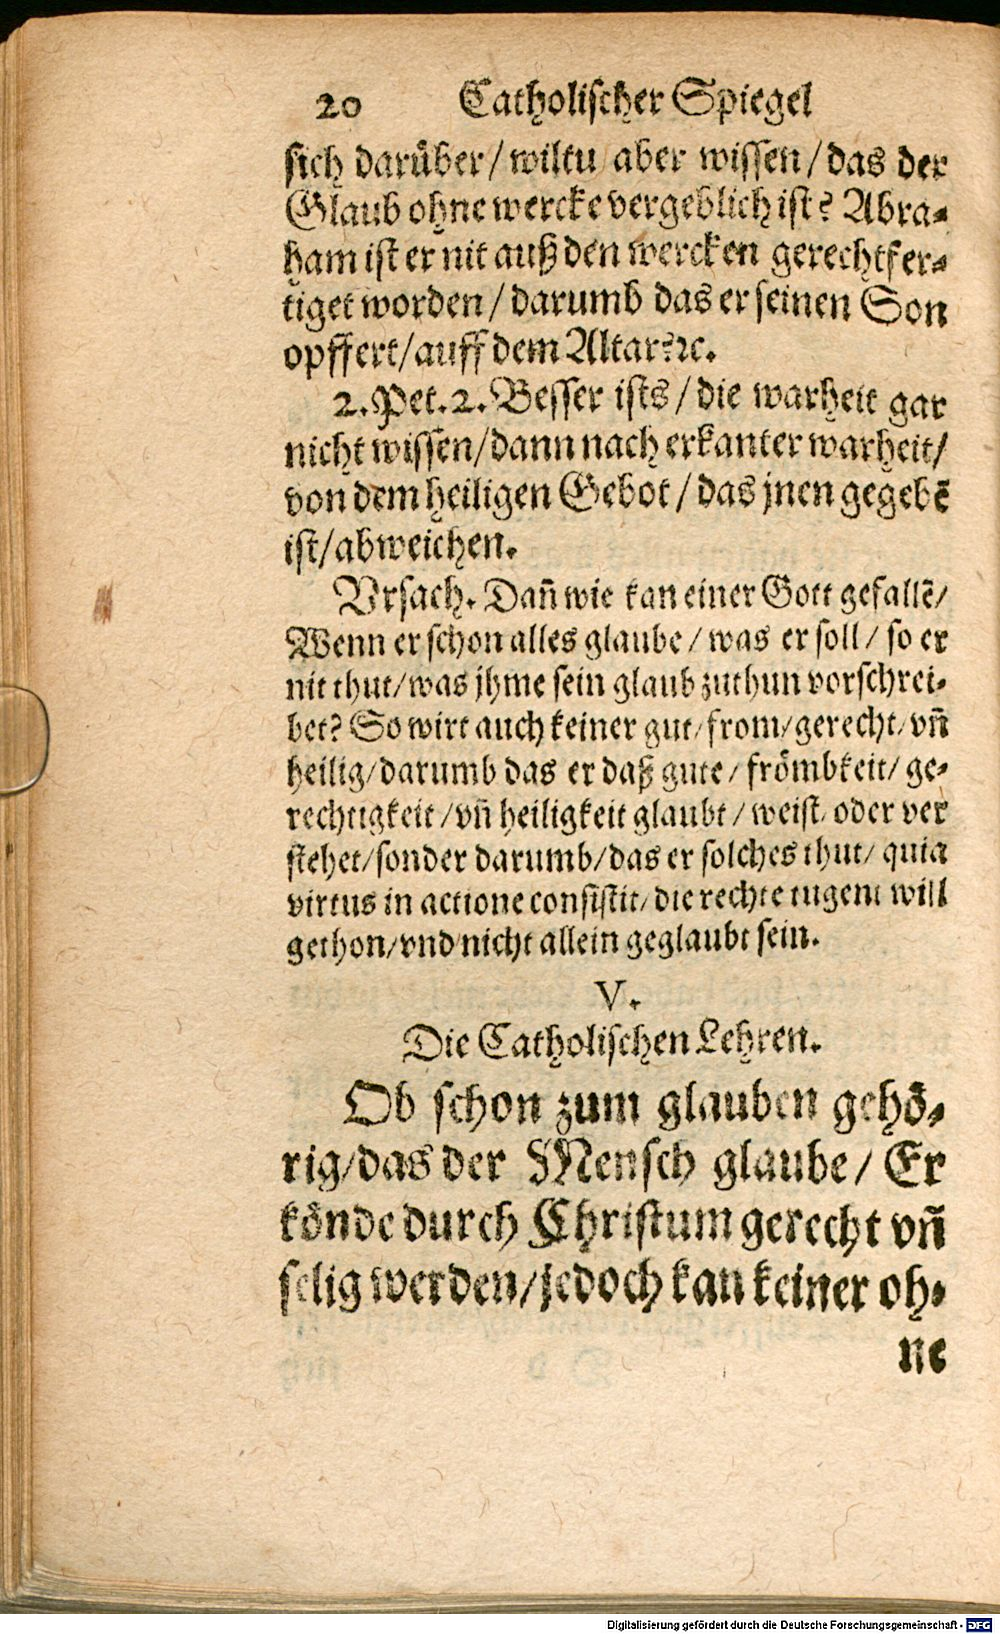 20 Catholischer Spiegel
sich darüber/ wiltu aber wissen/ das der
Glaub ohne wercke vergeblich ist? Abra-
ham ist er nit auß den wercken gerechtfer-
tiget worden/ darumb das er seinen Son
opffert/ auff dem Altar? ꝛc.
2. Pet. 2. Besser ists/ die warheit gar
nicht wissen/ dann nach erkanter warheit/
von dem heiligen Gebot/ das jnen gegebē
ist/ abweichen.
Vrsach. Dañ wie kan einer Gott gefallē/
Wenn er schon alles glaube/ was er soll/ so er
nit thut/ was jhme sein glaub zuthun vorschrei-
bet? So wirt auch keiner gut/ from/ gerecht/ vñ
heilig/ darumb das er daß gute/ frömbkeit/ ge-
rechtigkeit/ vñ heiligkeit glaubt/ weist/ oder ver
stehet/ sonder darumb/ das er solches thut/ quia
virtus in actione consistit/ die rechte tugent will
gethon/ vnd nicht allein geglaubt sein.
V.
Die Catholischen Lehren.
Ob schon zum glauben gehö-
rig/ das der Mensch glaube/ Er
könde durch Christum gerecht vñ
selig werden/ jedoch kan keiner oh-
ne
Digitalisierung gefördert durch die Deutsche Forschungsgemeinschaft - DFG